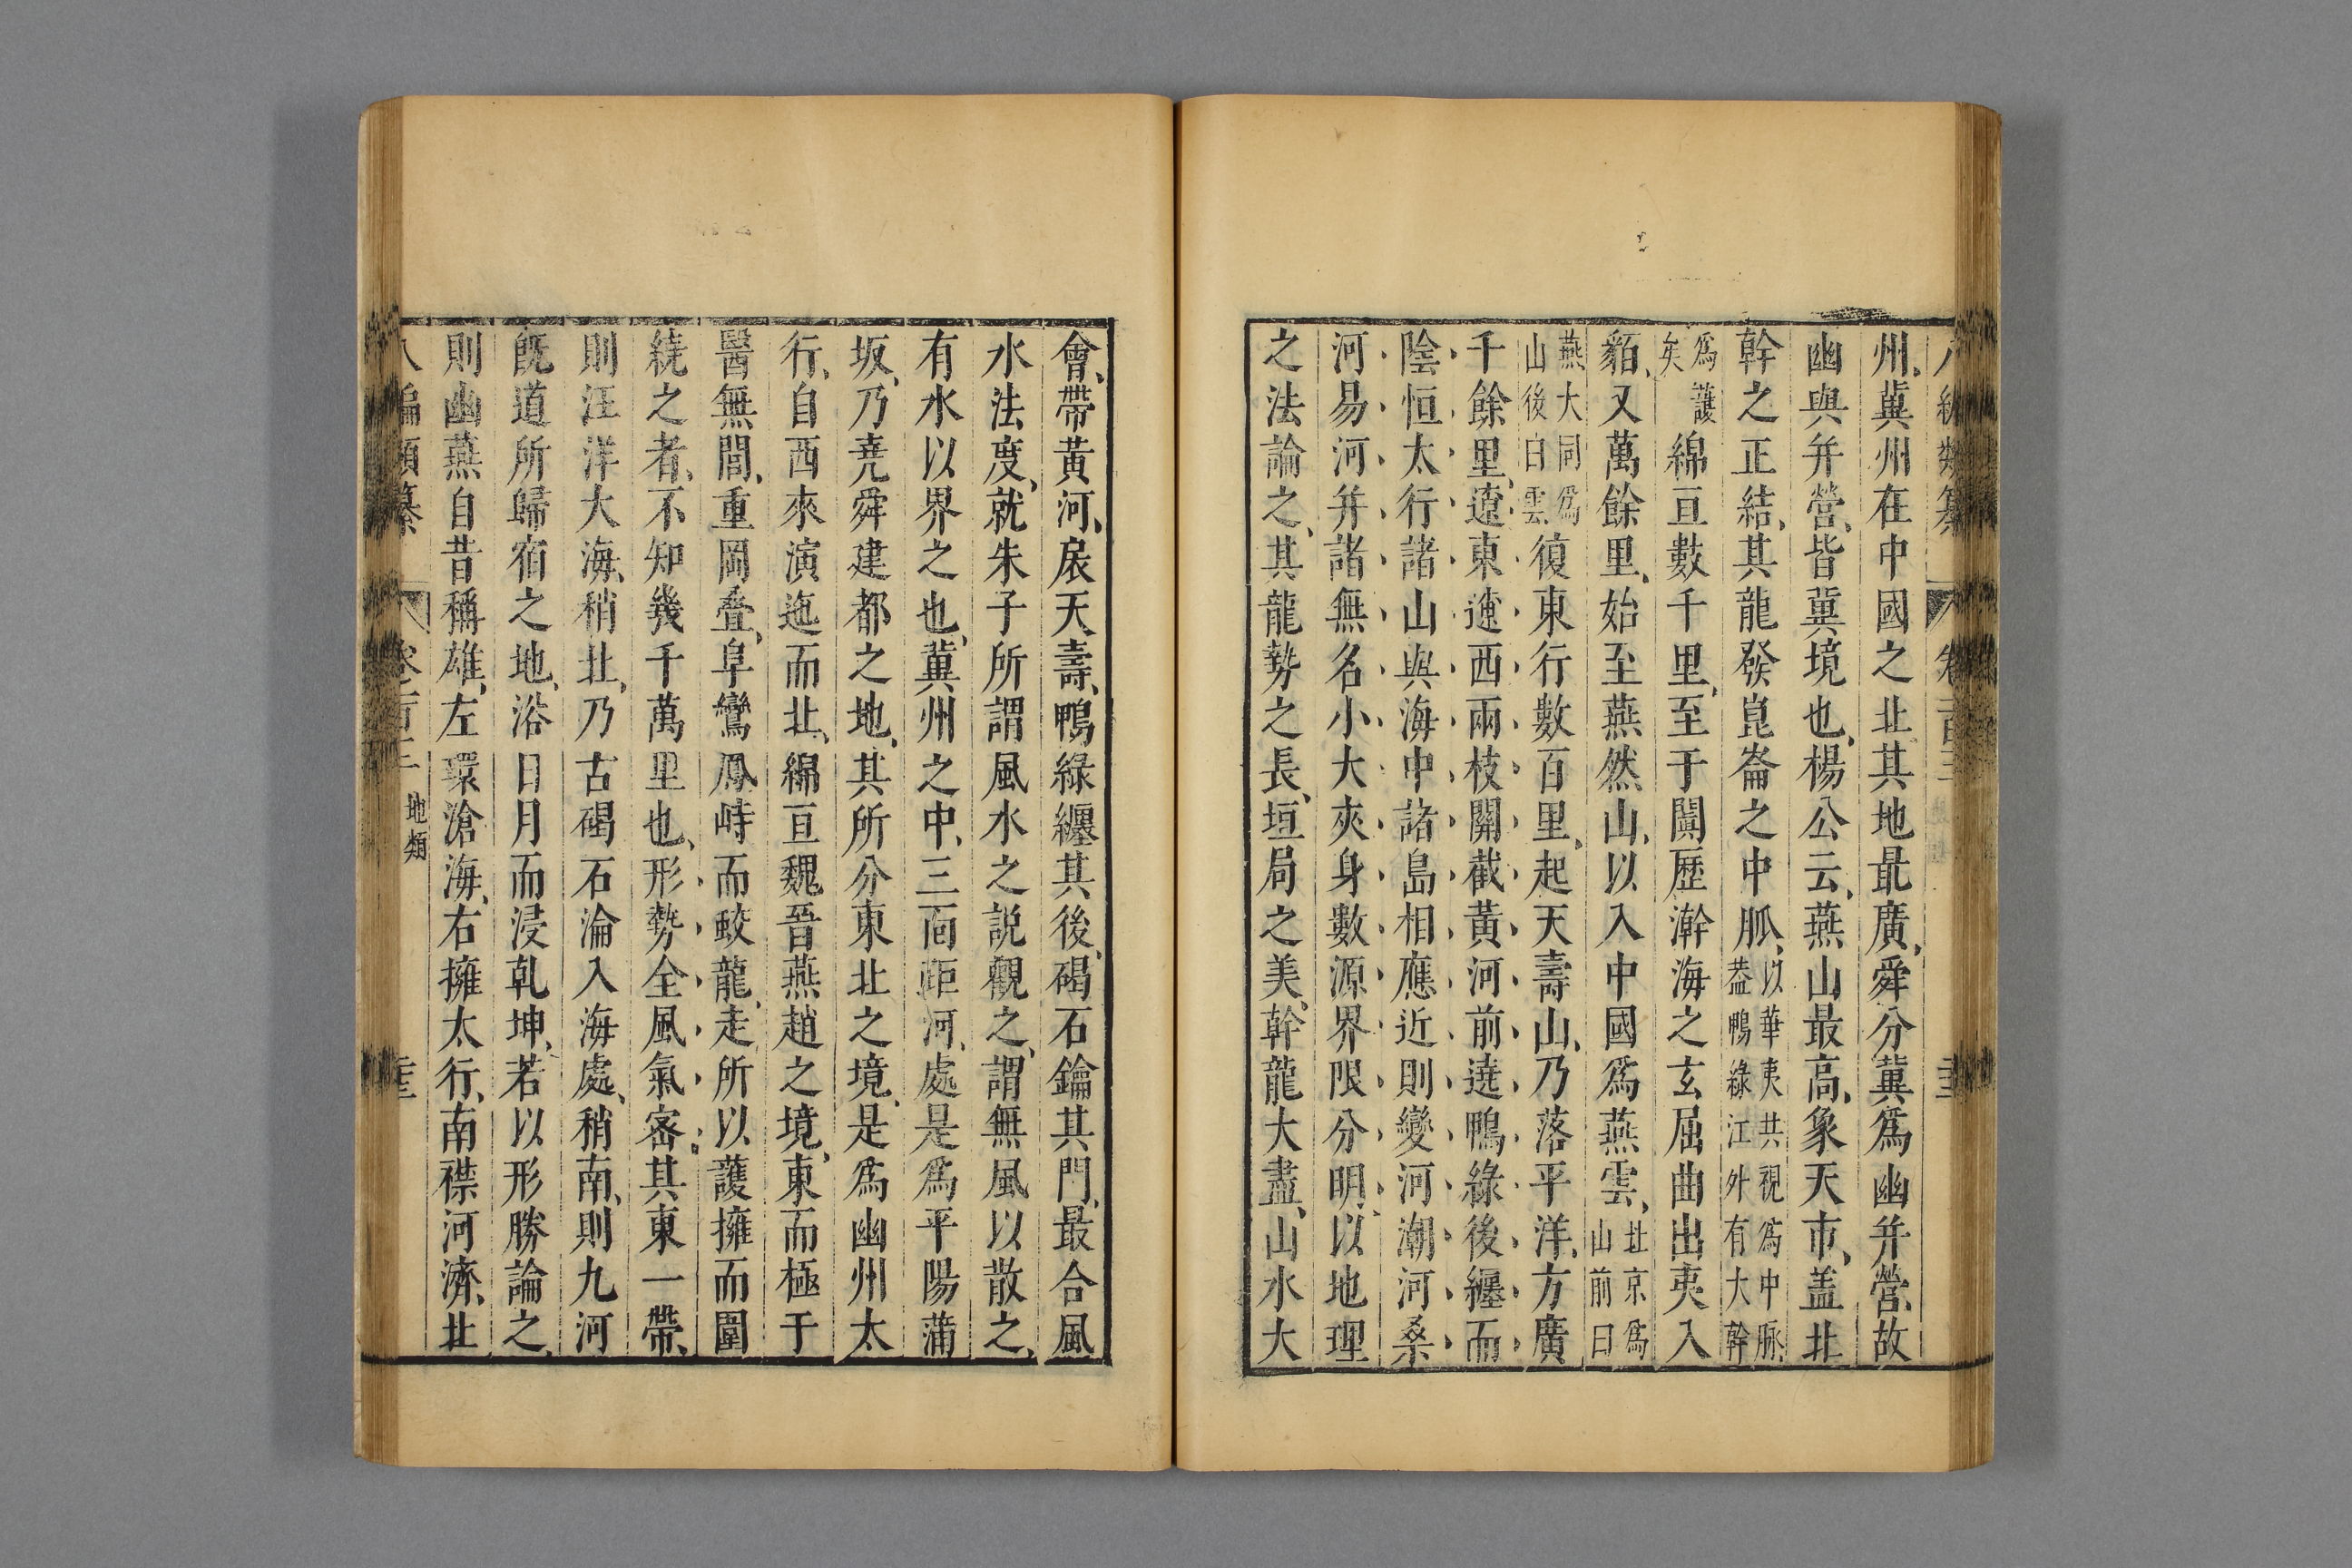 州、冀州在中國之北、其地最廣、舜分冀爲幽幷營、故
幽與幷營、皆冀境也、楊公云、燕山最高、象天市、盖北
幹之正結、其龍發崑崙之中脈、以華夷共視爲中脉、葢鴨綠江外有大幹
爲護矣綿亘數千里、至于闐歷瀚海之玄屈曲出夷入
貊、又萬餘里、始至燕然山、以入中國爲燕雲、北京爲山前曰
燕大同爲山後白雲復東行數百里、起天壽山、乃落平洋、方廣
千餘里、遼東遼西兩枝開截黃河前遶鴨綠後纏而
陰恒太行諸山與海中諸島相應近則灤河潮河桑
河易河幷諸無名小大夾身數源界限分明、以地理
之法論之、其龍勢之長、垣局之美、幹龍大盡、山水大
會、帶黃河、扆天壽、鴨綠纏其後、碣石鑰其門、最合風
水法度、就朱子所謂風水之説觀之、謂無風以散之、
有水以界之也、冀州之中、三面距河、處是爲平陽蒲
坂、乃堯舜建都之地、其所分東北之境、是爲幽州太
行、自西來演迤而北、綿亘魏晉燕趙之境、東而極于
醫無閭、重岡疊阜鸞鳳峙而蛟龍走所以護擁而圍
繞之者、不知幾千萬里也、形勢全風氣密、其東一帶、
則汪洋大海、稍北、乃古碣石淪入海處、稍南、則九河
旣道所歸宿之地、浴日月而浸乹坤、若以形勝論之、
則幽燕自昔稱雄、左環滄海、右擁太行、南襟河濟、北
地類